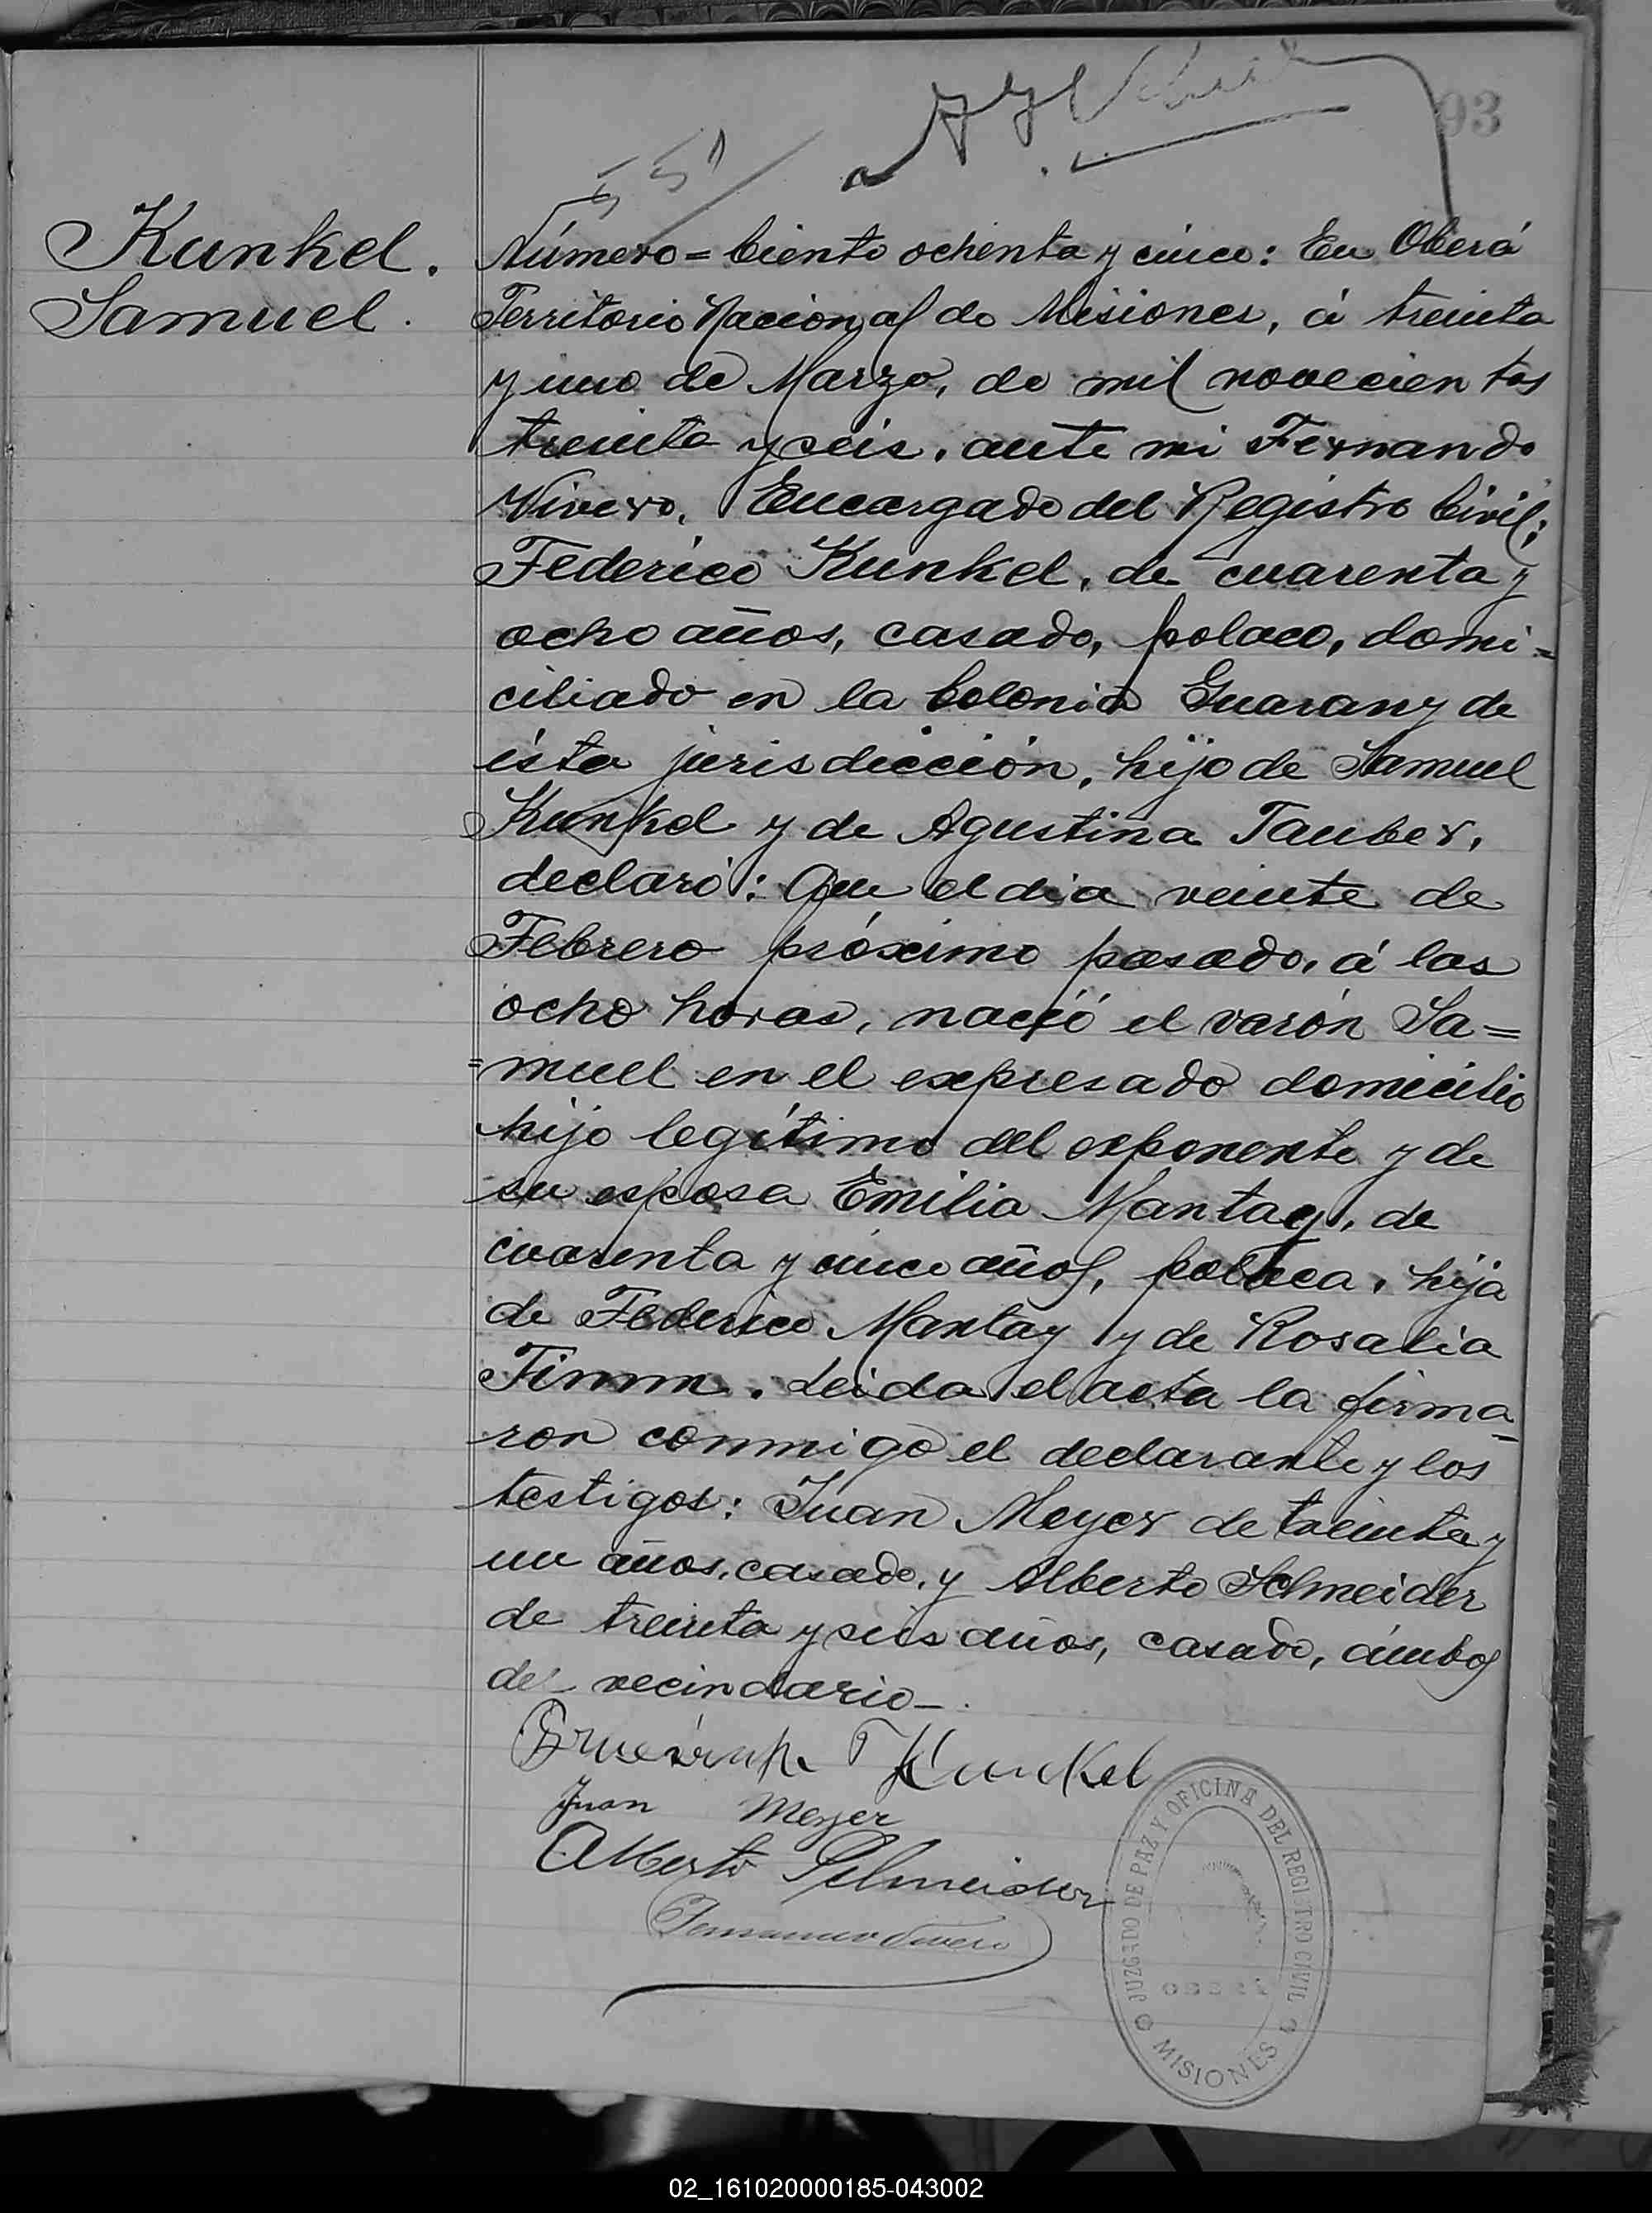 93
55
Kunkel.
Samuel.
Número = Ciento ochenta y cinco: En Oberá
Territorio Nacional de Misiones, á treinta
y uno de Marzo, de mil novecientos
treinta y seis, ante mi Fernando
Vivero, Encargado del Registro Civil;
Federico Kunkel, de cuarenta y
ocho años, casado, polaco, domi=
ciliado en la Colonia Guarany de
ésta jurisdicción, hijo de Samuel
Kunkel y de Agustina Tauber,
declaró: Que el dia veinte de
Febrero próximo pasado, á las
ocho horas, nació el varón Sa=
=muel en el expresado domicilio
hijo legítimo del exponente y de
su esposa Emilia Mantay, de
cuarenta y cinco años, polaca, hija
de Federico Mantay y de Rosalia
Timm. Leida el acta la firma=
ron conmigo el declarante y los
testigos: Juan Meyer de treinta y
un años, casado, y Alberto Schneider
de treinta y seis años, casado, ámbos
del vecindario_.
Kunkel
Juan Meyer
Alberto Schneider
Fernando Vivero
JUZGADO DE PAZ Y OFICINA DEL REGISTRO CIVIL
OBERA
MISIONES
02_161020000185-043002